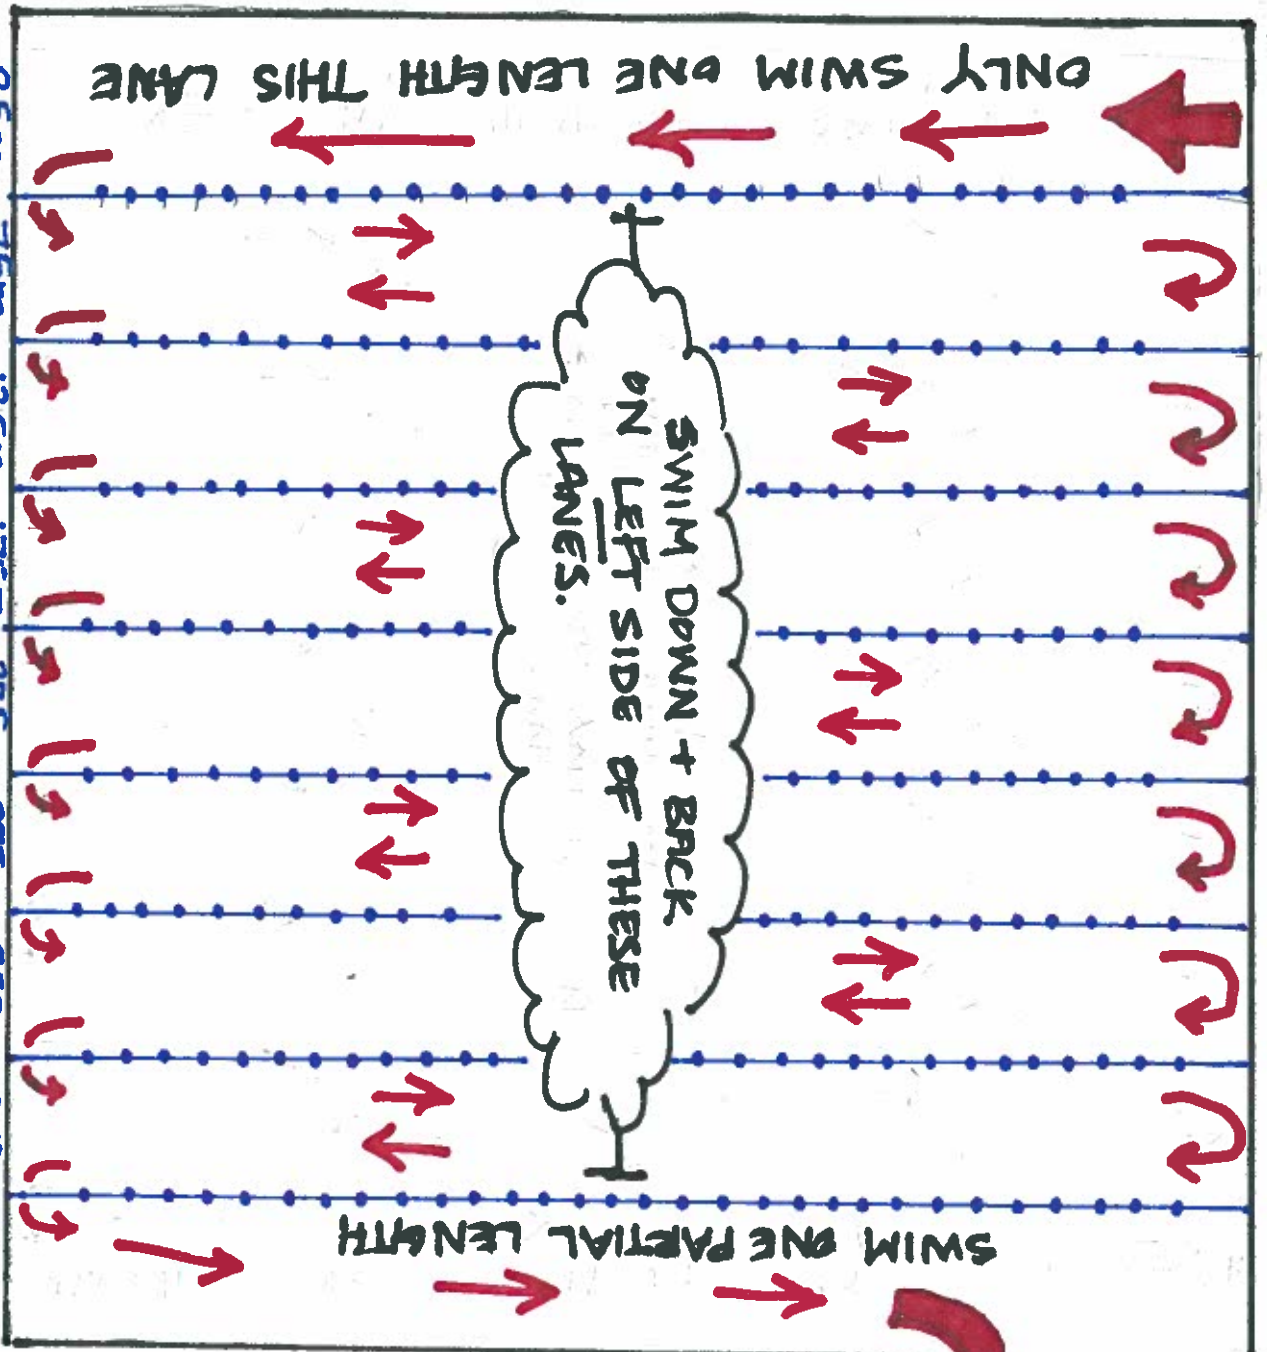 ONLY SWIM ONE LENGTH THIS LANE
SWIM DOWN + BACK
ON LEFT SIDE OF THESE
LANES.
SWIM ONE PARTIAL LENGTH